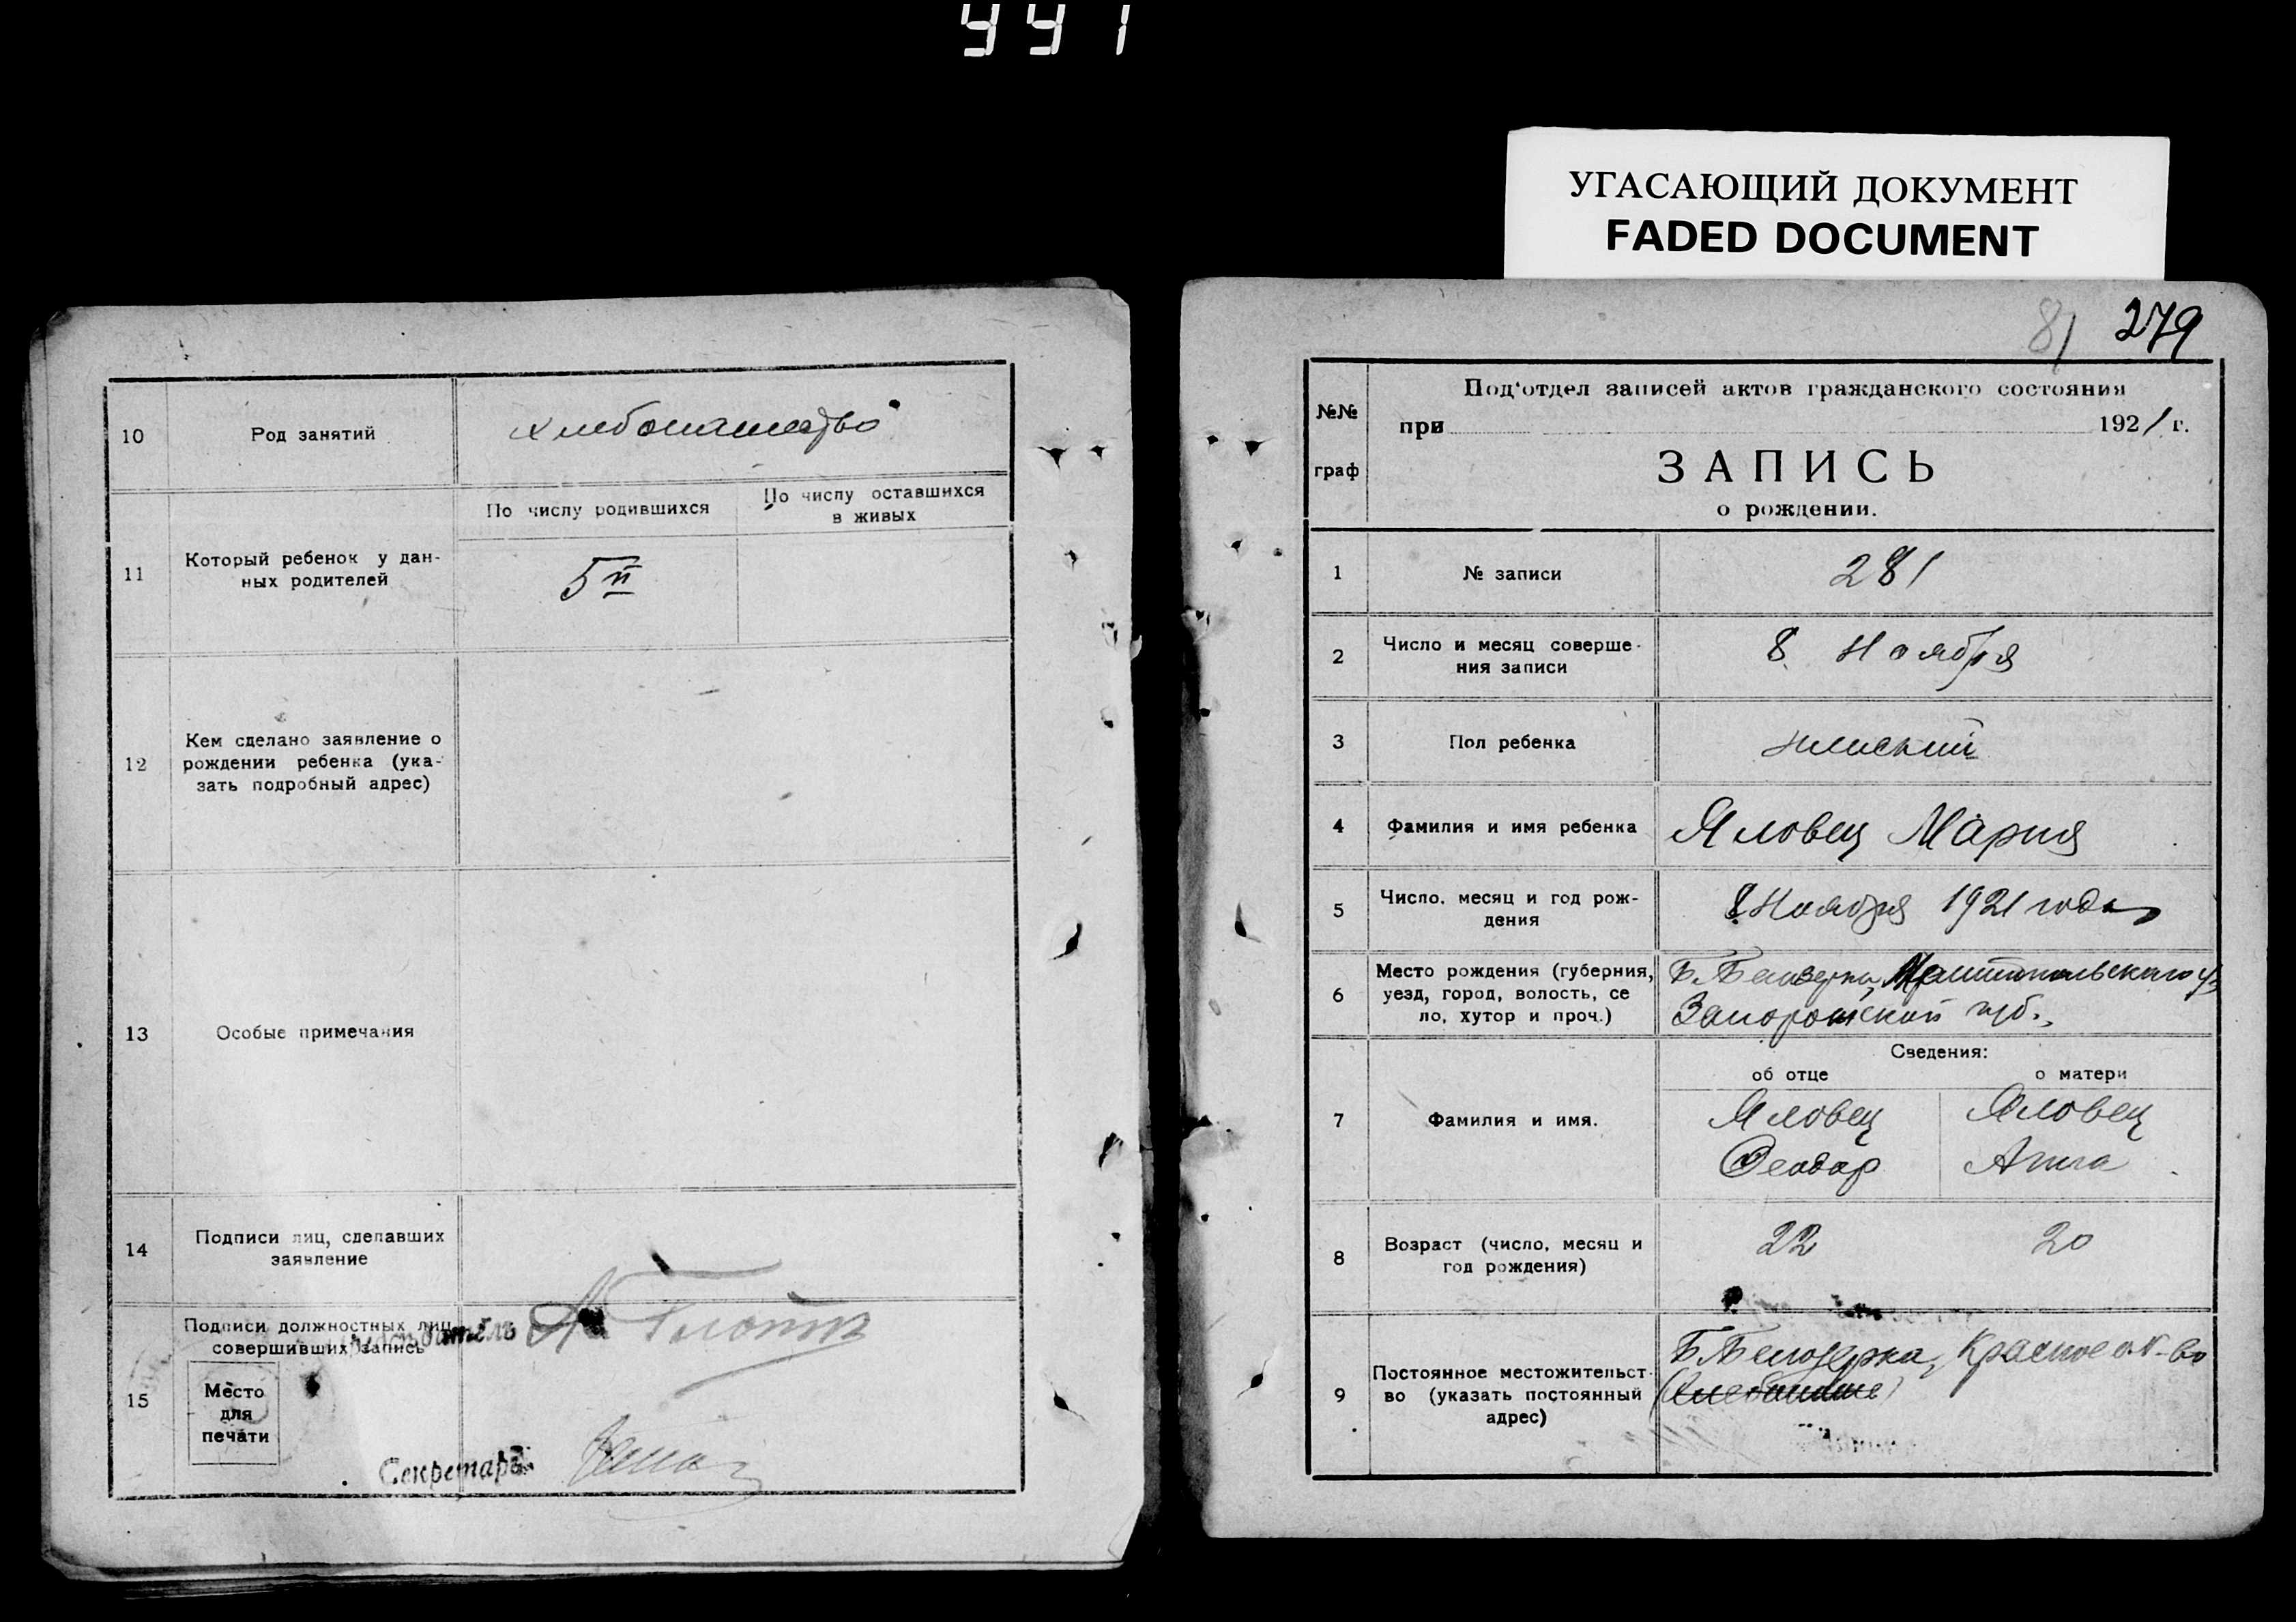 991
УГАСАЮЩИЙ ДОКУМЕНТ
FADED DOCUMENT
10
Род занятий
хлебопашество
11
Который ребенок у дан-
ных родителей
По числу родившихся
По числу оставшихся
в живых
5й
12
Кем сделано заявление о
рождении ребенка (ука-
зать подробный адрес)
13
Особые примечания
14
Подписи лиц, сделавших
заявление
15
Подписи должностных лиц,
совершивших запись
Место
для
печати
Председатель
Секретарь
81 279
№№
граф
Под'отдел записей актов гражданского состояния
при 1921 г.
ЗАПИСЬ
о рождении.
1
№ записи
281
2
Число и месяц соверше-
ния записи
8 Ноября
3
Пол ребенка
женский
4
Фамилия и имя ребенка
Яловец Мария
5
Число, месяц и год рож-
дения
8 Ноября 1921 года
6
Место рождения (губерния,
уезд, город, волость, се
ло, хутор и проч.)
Б. Белозерка, Мелитопольского у
Запорожской губ.
Сведения:
об отце
о матери
7
Фамилия и имя.
Яловец
Феодор
Яловец
Анна
8
Возраст (число, месяц и
год рождения)
22
20
9
Постоянное местожительст-
во (указать постоянный
адрес)
Б. Белозерка, Красное о. К-во